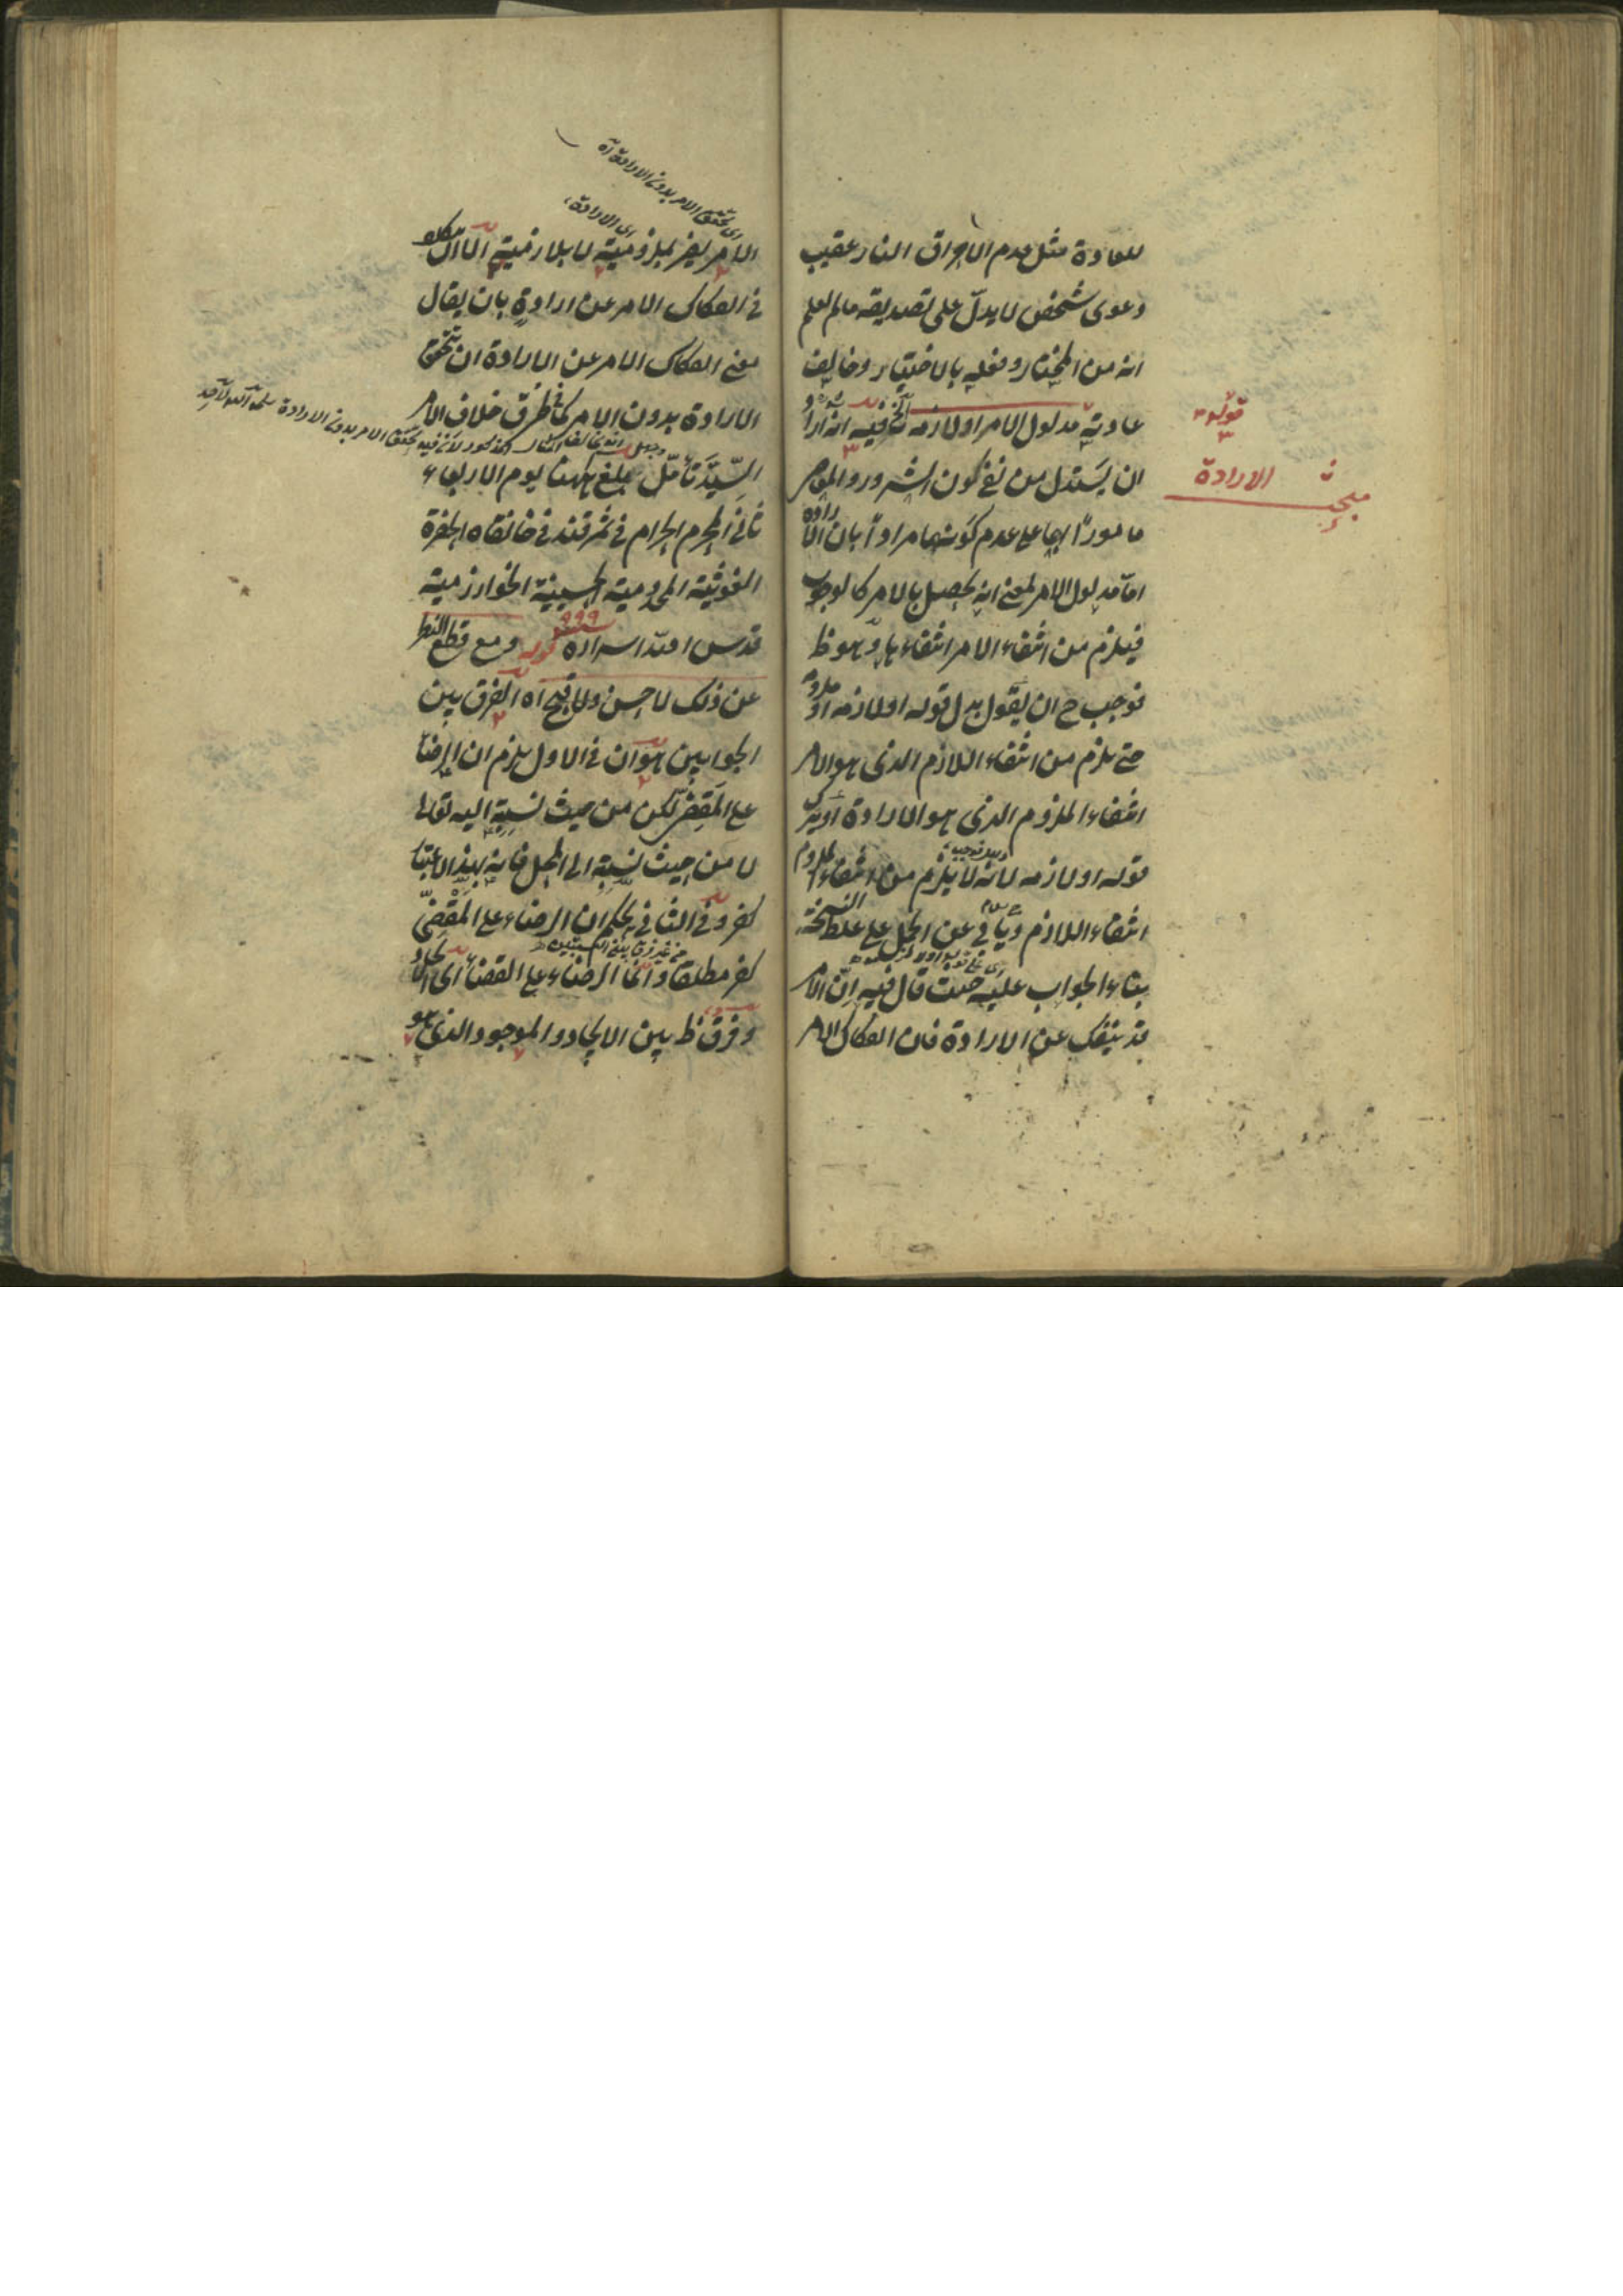 للعادة مثل عدم الاحراق النار عقيب
دعوى شخص لا يدل على تصديقه ما لم يعلم
انه من المختار وفعله بالاختيار وخالف
عادته مدلول الامر او لازمه الخ فيه انه ارا
قوله
مبحث الارادة
ان يستدل من نفي كون الشرور و
مامورا بها على عدم كونها مرادا بان الارادة
اما مدلول الامر بمعنى انه يحصل بالامر كالوجوب
فيلزم من انتفاء الامر انتفاءها وهو ظ
فوجب ح ان يقول بدل قوله او لازمه او ملزومه
حتى يلزم من انتفاء اللازم الذي هو الامر
انتفاء الملزوم الذي هو الارادة او يترك
قوله او لازمه لانه لا يلزم من انتفاء الملزوم
انتفاء اللازم و عن الحمل على غلط النسخة
بناء الجواب عليه حيث قال فيه ان الامر
قد ينفك عن الارادة فان انفكاك الامر
اى تحقق الامر بدون الارادة اه
اى الارادة
الامر بملزومية لا بلازمية اللهم
في انفكاك الامر عن ارادة بان يقال
معنى انفكاك الامر عن الارادة ان تتحقق
الارادة بدون الامر كما في طرق خلاف الامر
المذكور لان فيه تحقق الامر بدون الارادة
السيد تأمل بلغ ههنا يوم الاربعاء
ثاني المحرم الحرام في سمرقند في خانقاه الحضرة
الغوثية المخدومية الحسينية الخوارزمية
قدس الله اسراره ٩٩٩ قوله ومع قطع النظر
عن ذلك لا حسن ولا قبح اه الفرق بين
الجوابين هو ان في الاول يلزم ان الرضا
على المقضي لكن من حيث نسبته اليه تعالى
لا من حيث نسبته الى المحل فانه بهذا الاعتبار
كفر وفي الثاني يحكم ان الرضاء على المقضي
من غير فرق بين النسبتين
كفر مطلقا وانما الرضاء على القضاء اى الايجاد
وفرق ظ بين الايجاد والموجود الذى هو